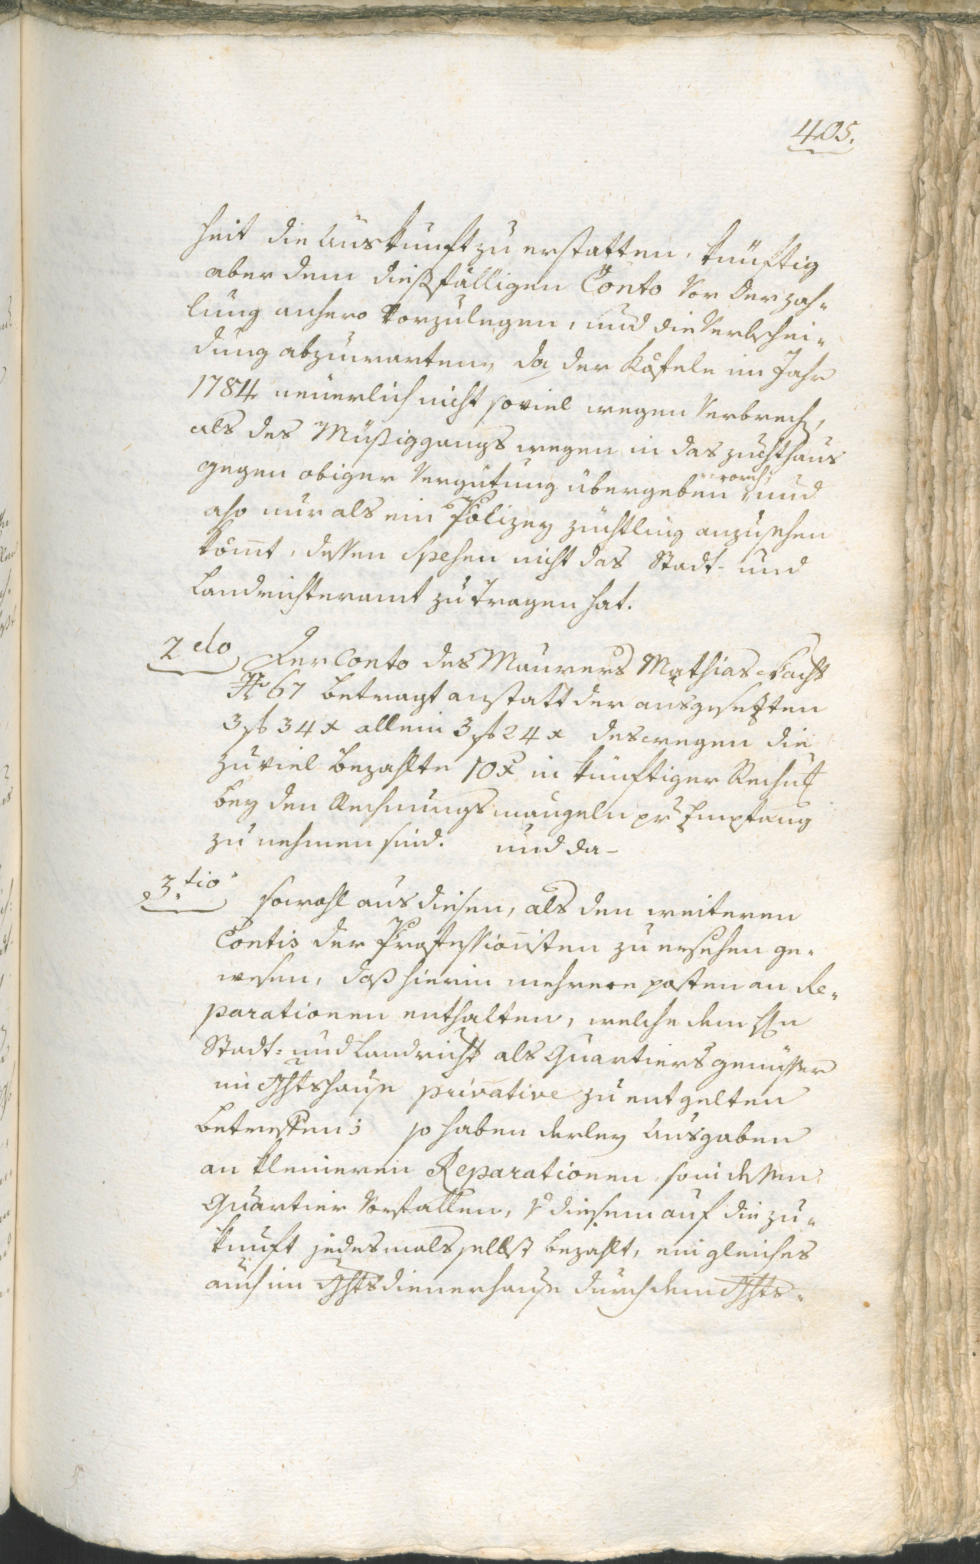 405.
heit die Auskunft zu erstatten, künftig
aber dem dießfälligen Conto vor der zah-
lung anhero vorzulegen, und die Verbschei-
dung abzuwarten, da der Kösteln im Jahr
1784 neuerlich nicht soviel wegen Verbrech,
als des Müßiggangs wegen in das zuchthaus
gegen obiger Vergütung übergeben word, und
also nur als ein Polizey züchtling anzusehen
kom̄t, dessen Spesen nicht das Stadt- und
Landrichteramt zu tragen hat.
2do Der Conto des Maurers Mathias
No 67 betragt anstatt der ausgesezten
3 f 34 x allein 3 f 24 x deswegen die
zuviel bezahlte 10 x in künftiger Rechnug
bey den Rechnungsmängeln pr Empfang
zu nehmen sind. und da-
3.tio sowohl aus diesen, als den weiteren
Contis der Professionisten zu ersehen ge-
wesen, daß hierin mehrere posten an Re-
parationen enthalten, welche dem Hn
Stadt- und Landricht als Quartiersgenüsser
im Ghtshause privative zu entgelten
betreffen; so haben derley Ausgaben
an kleineren Reparationen, so in dessen
Quartier vorfallen, v diesem auf die zu-
kunft jedesmals selbst bezahlt, ein gleiches
auch im Ghtsdienerhause durch dem Ghts-